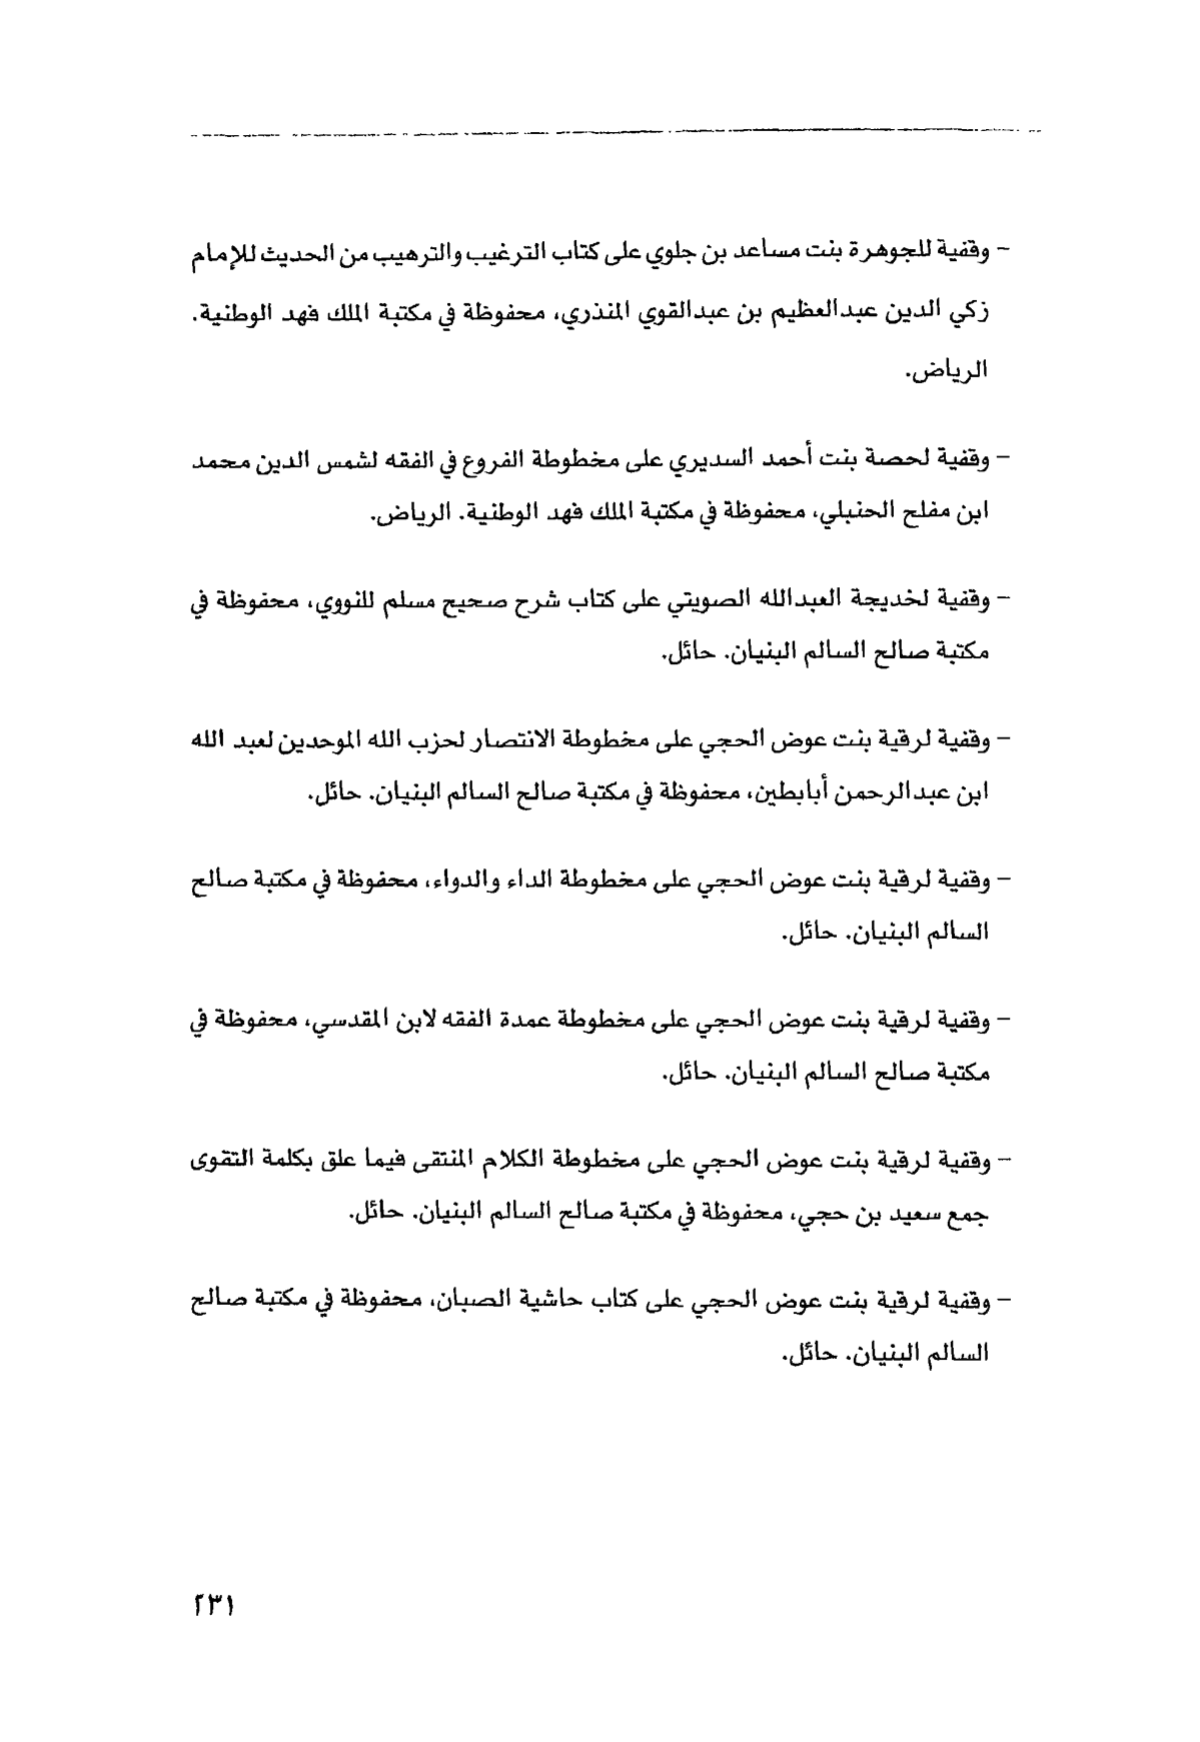 – وقفية للجوهرة بنت مساعد بن جلوي على كتاب الترغيب والترهيب من الحديث للإمام
زكي الدين عبدالعظيم بن عبدالقوي المنذري، محفوظة في مكتبة الملك فهد الوطنية.
الرياض.
– وقفية لحصة بنت أحمد السديري على مخطوطة الفروع في الفقه لشمس الدين محمد
ابن مفلح الحنبلي، محفوظة في مكتبة الملك فهد الوطنية. الرياض.
– وقفية لخديجة العبدالله الصويتي على كتاب شرح صحيح مسلم للنووي، محفوظة في
مكتبة صالح السالم البنيان. حائل.
– وقفية لرقية بنت عوض الحجي على مخطوطة الانتصار لحزب الله الموحدين لعبد الله
ابن عبدالرحمن أبابطين، محفوظة في مكتبة صالح السالم البنيان. حائل.
– وقفية لرقية بنت عوض الحجي على مخطوطة الداء والدواء، محفوظة في مكتبة صالح
السالم البنيان. حائل.
– وقفية لرقية بنت عوض الحجي على مخطوطة عمدة الفقه لابن المقدسي، محفوظة في
مكتبة صالح السالم البنيان. حائل.
– وقفية لرقية بنت عوض الحجي على مخطوطة الكلام المنتقى فيما علق بكلمة التقوى
جمع سعيد بن حجي، محفوظة في مكتبة صالح السالم البنيان. حائل.
– وقفية لرقية بنت عوض الحجي على كتاب حاشية الصبان، محفوظة في مكتبة صالح
السالم البنيان. حائل.
٢٣١